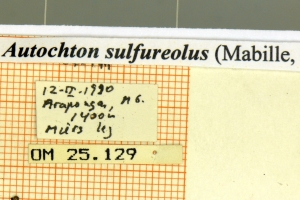 Autochton sulfureolus (Mabille,
12-II-1990
Arapongas, MG.
1400m
Mielke leg
OM 25.129